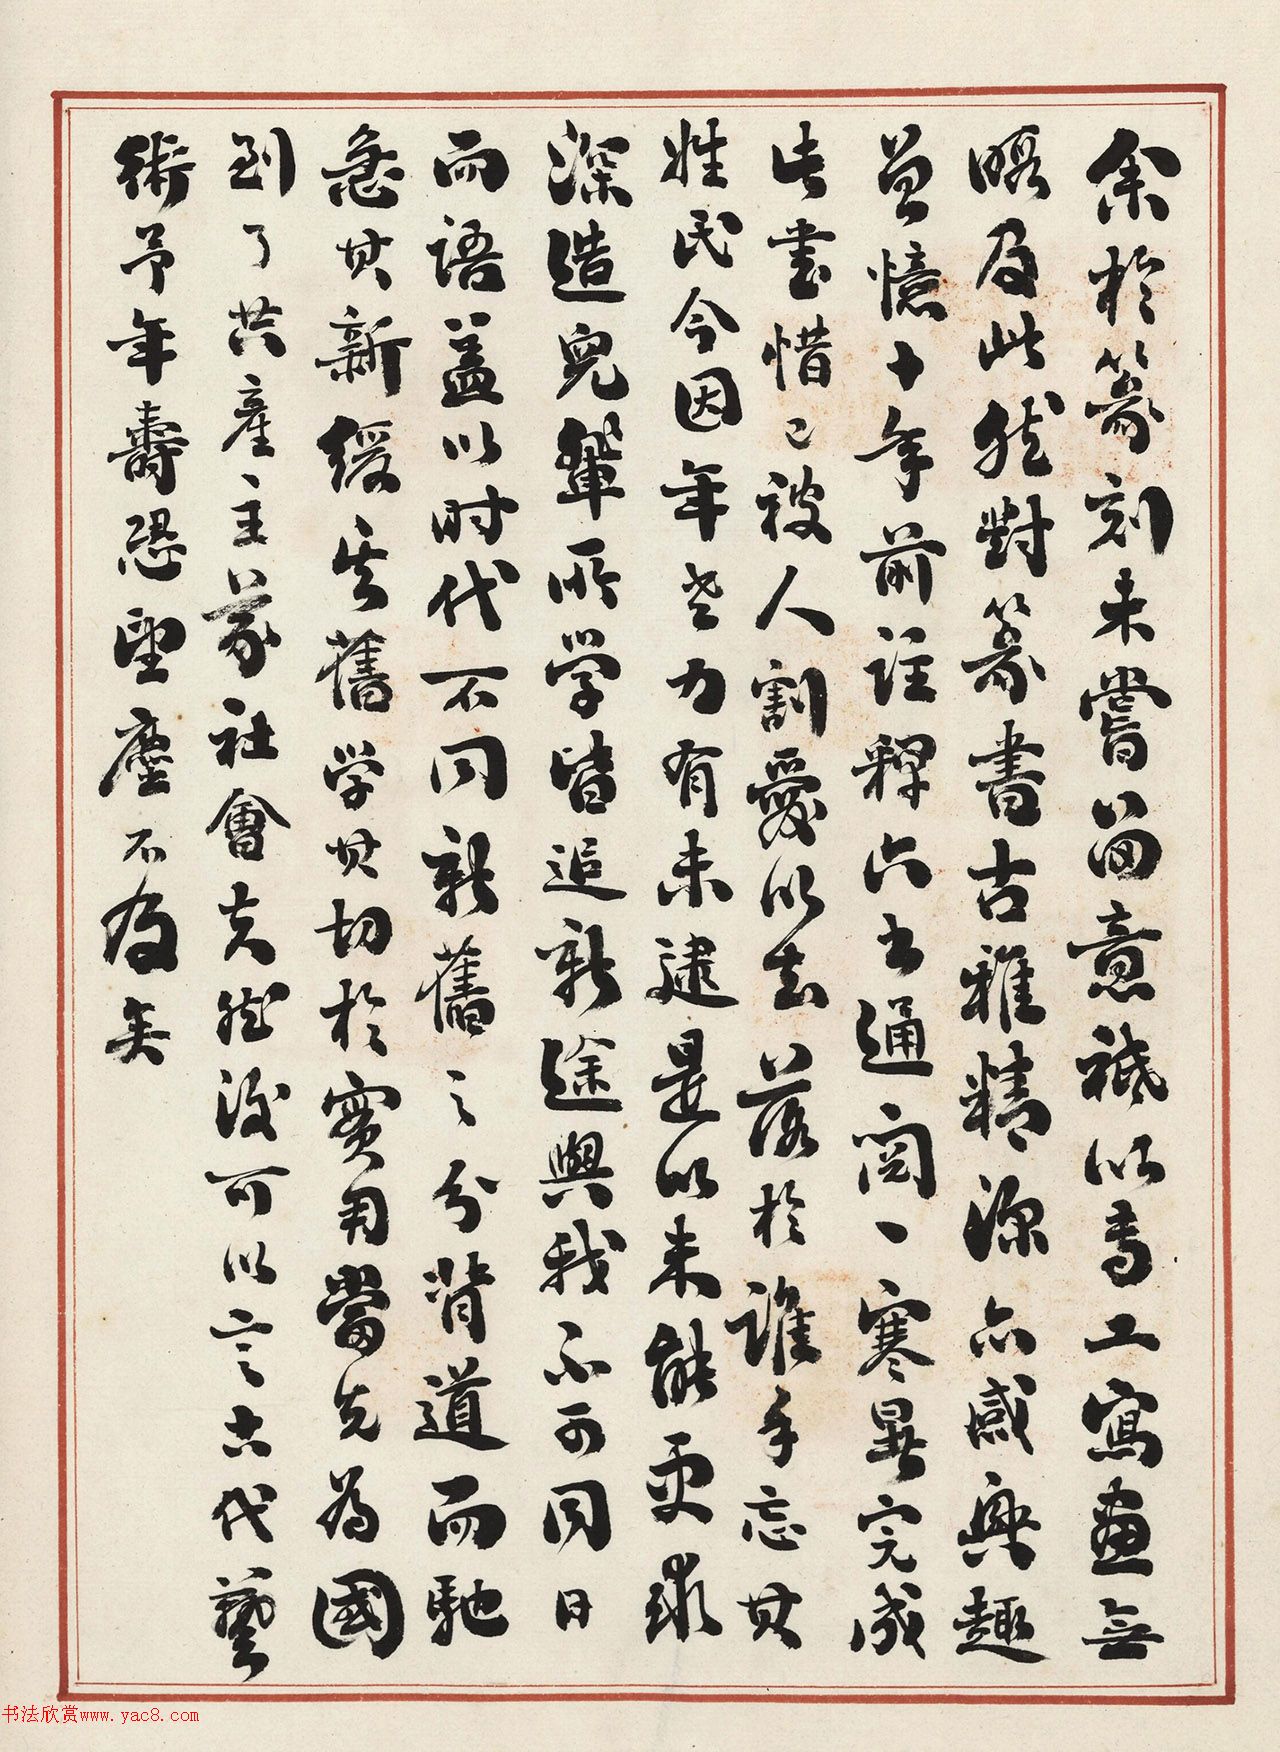 余於篆刻未嘗留意祗以專工寫畫無
暇及此然對篆書古雅精深亦感興趣
曾憶十年前註釋六书通閱一寒暑完成
此書惜已被人割愛以去落於誰手忘其
姓氏今因年老力有未逮是以未能更求
深造兒輩所学皆追新途與我不可同日
而語蓋以时代不同新舊之分背道而馳
急其新緩其舊学其切於實用當先為國
到了共產主義社會夫然後可以言古代藝
術予年壽恐望塵不及矣
书法欣赏www.yac8.com